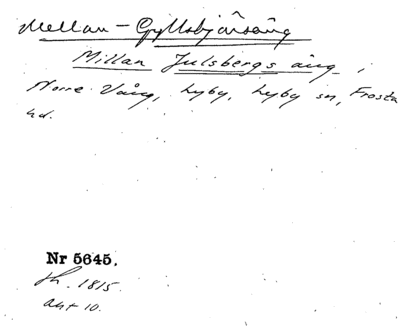 Mellan-Gyllsbjärsäng
Millan Julsbergs äng,
Norre Vång, Lyby, Lyby sn, Frosta
hd.
Nr 5645.
sk. 1815.
akt 10.